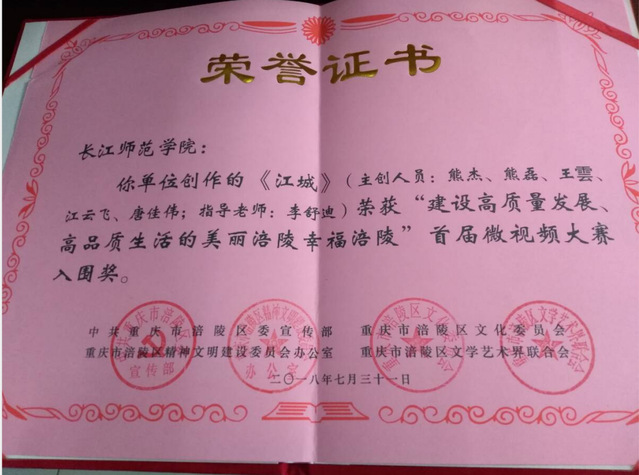 荣誉证书
长江师范学院：
你单位创作的《江城》（主创人员：熊杰、熊磊、王雲、
江云飞、唐佳伟；指导老师：李舒迪）荣获“建设高质量发展、
高品质生活的美丽涪陵幸福涪陵”首届微视频大赛
入围奖。
中共重庆市涪陵区委宣传部 重庆市涪陵区文化委员会
重庆市涪陵区精神文明建设委员会办公室 重庆市涪陵区文学艺术界联合会
二〇一八年七月三十一日
宣传部
办公室